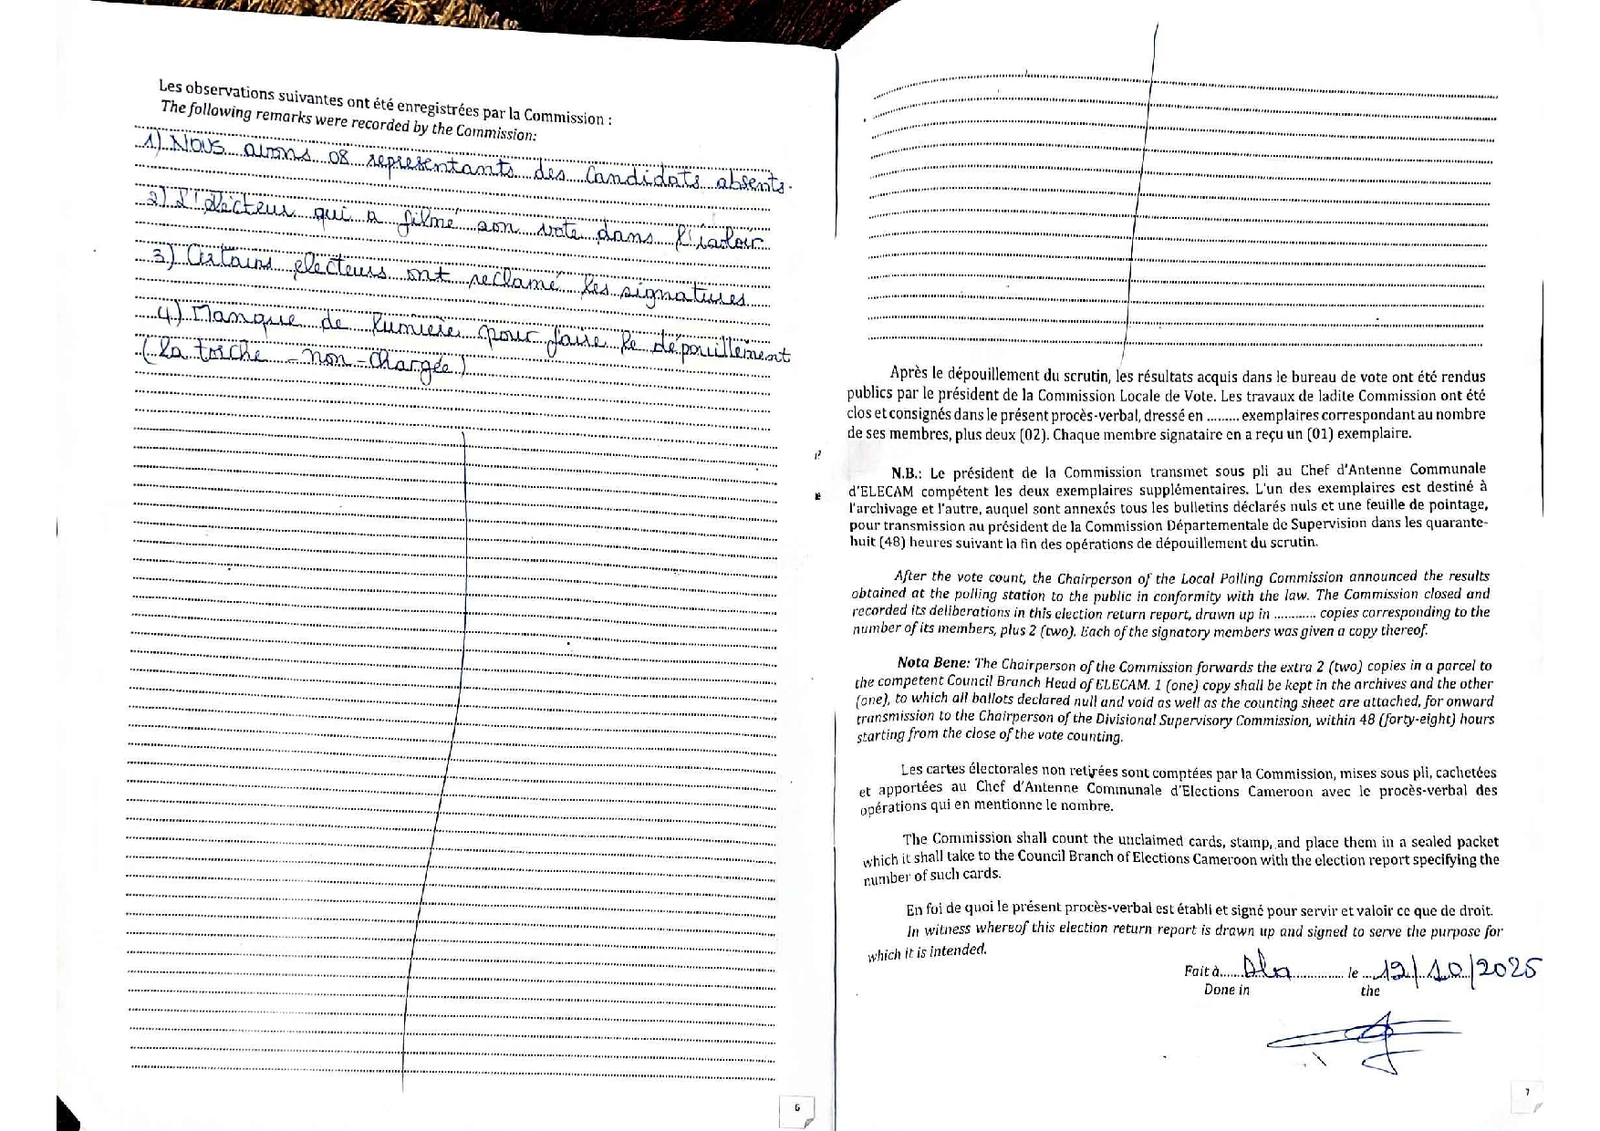 Les observations suivantes ont été enregistrées par la Commission :
The following remarks were recorded by the Commission:
1) Nous avons 08 representants des Candidats absents.
2) L'électeur qui a filmé son vote dans l'isoloir
3) Certains electeurs ont reclamé les signatures
4) Manque de lumière pour faire le dépouillement
(la torche - non - chargée)
6
Après le dépouillement du scrutin, les résultats acquis dans le bureau de vote ont été rendus
publics par le président de la Commission Locale de Vote. Les travaux de ladite Commission ont été
clos et consignés dans le présent procès-verbal, dressé en ......... exemplaires correspondant au nombre
de ses membres, plus deux (02). Chaque membre signataire en a reçu un (01) exemplaire.
N.B.: Le président de la Commission transmet sous pli au Chef d'Antenne Communale
d'ELECAM compétent les deux exemplaires supplémentaires. L'un des exemplaires est destiné à
l'archivage et l'autre, auquel sont annexés tous les bulletins déclarés nuls et une feuille de pointage,
pour transmission au président de la Commission Départementale de Supervision dans les quarante-
huit (48) heures suivant la fin des opérations de dépouillement du scrutin.
After the vote count, the Chairperson of the Local Polling Commission announced the results
obtained at the polling station to the public in conformity with the law. The Commission closed and
recorded its deliberations in this election return report, drawn up in ............ copies corresponding to the
number of its members, plus 2 (two). Each of the signatory members was given a copy thereof.
Nota Bene: The Chairperson of the Commission forwards the extra 2 (two) copies in a parcel to
the competent Council Branch Head of ELECAM. 1 (one) copy shall be kept in the archives and the other
(one), to which all ballots declared null and void as well as the counting sheet are attached, for onward
transmission to the Chairperson of the Divisional Supervisory Commission, within 48 (forty-eight) hours
starting from the close of the vote counting.
Les cartes électorales non retirées sont comptées par la Commission, mises sous pli, cachetées
et apportées au Chef d'Antenne Communale d'Elections Cameroon avec le procès-verbal des
opérations qui en mentionne le nombre.
The Commission shall count the unclaimed cards, stamp, and place them in a sealed packet
which it shall take to the Council Branch of Elections Cameroon with the election report specifying the
number of such cards.
En foi de quoi le présent procès-verbal est établi et signé pour servir et valoir ce que de droit.
In witness whereof this election return report is drawn up and signed to serve the purpose for
which it is intended.
Fait à ..... le 12/10/2025
Done in the
7